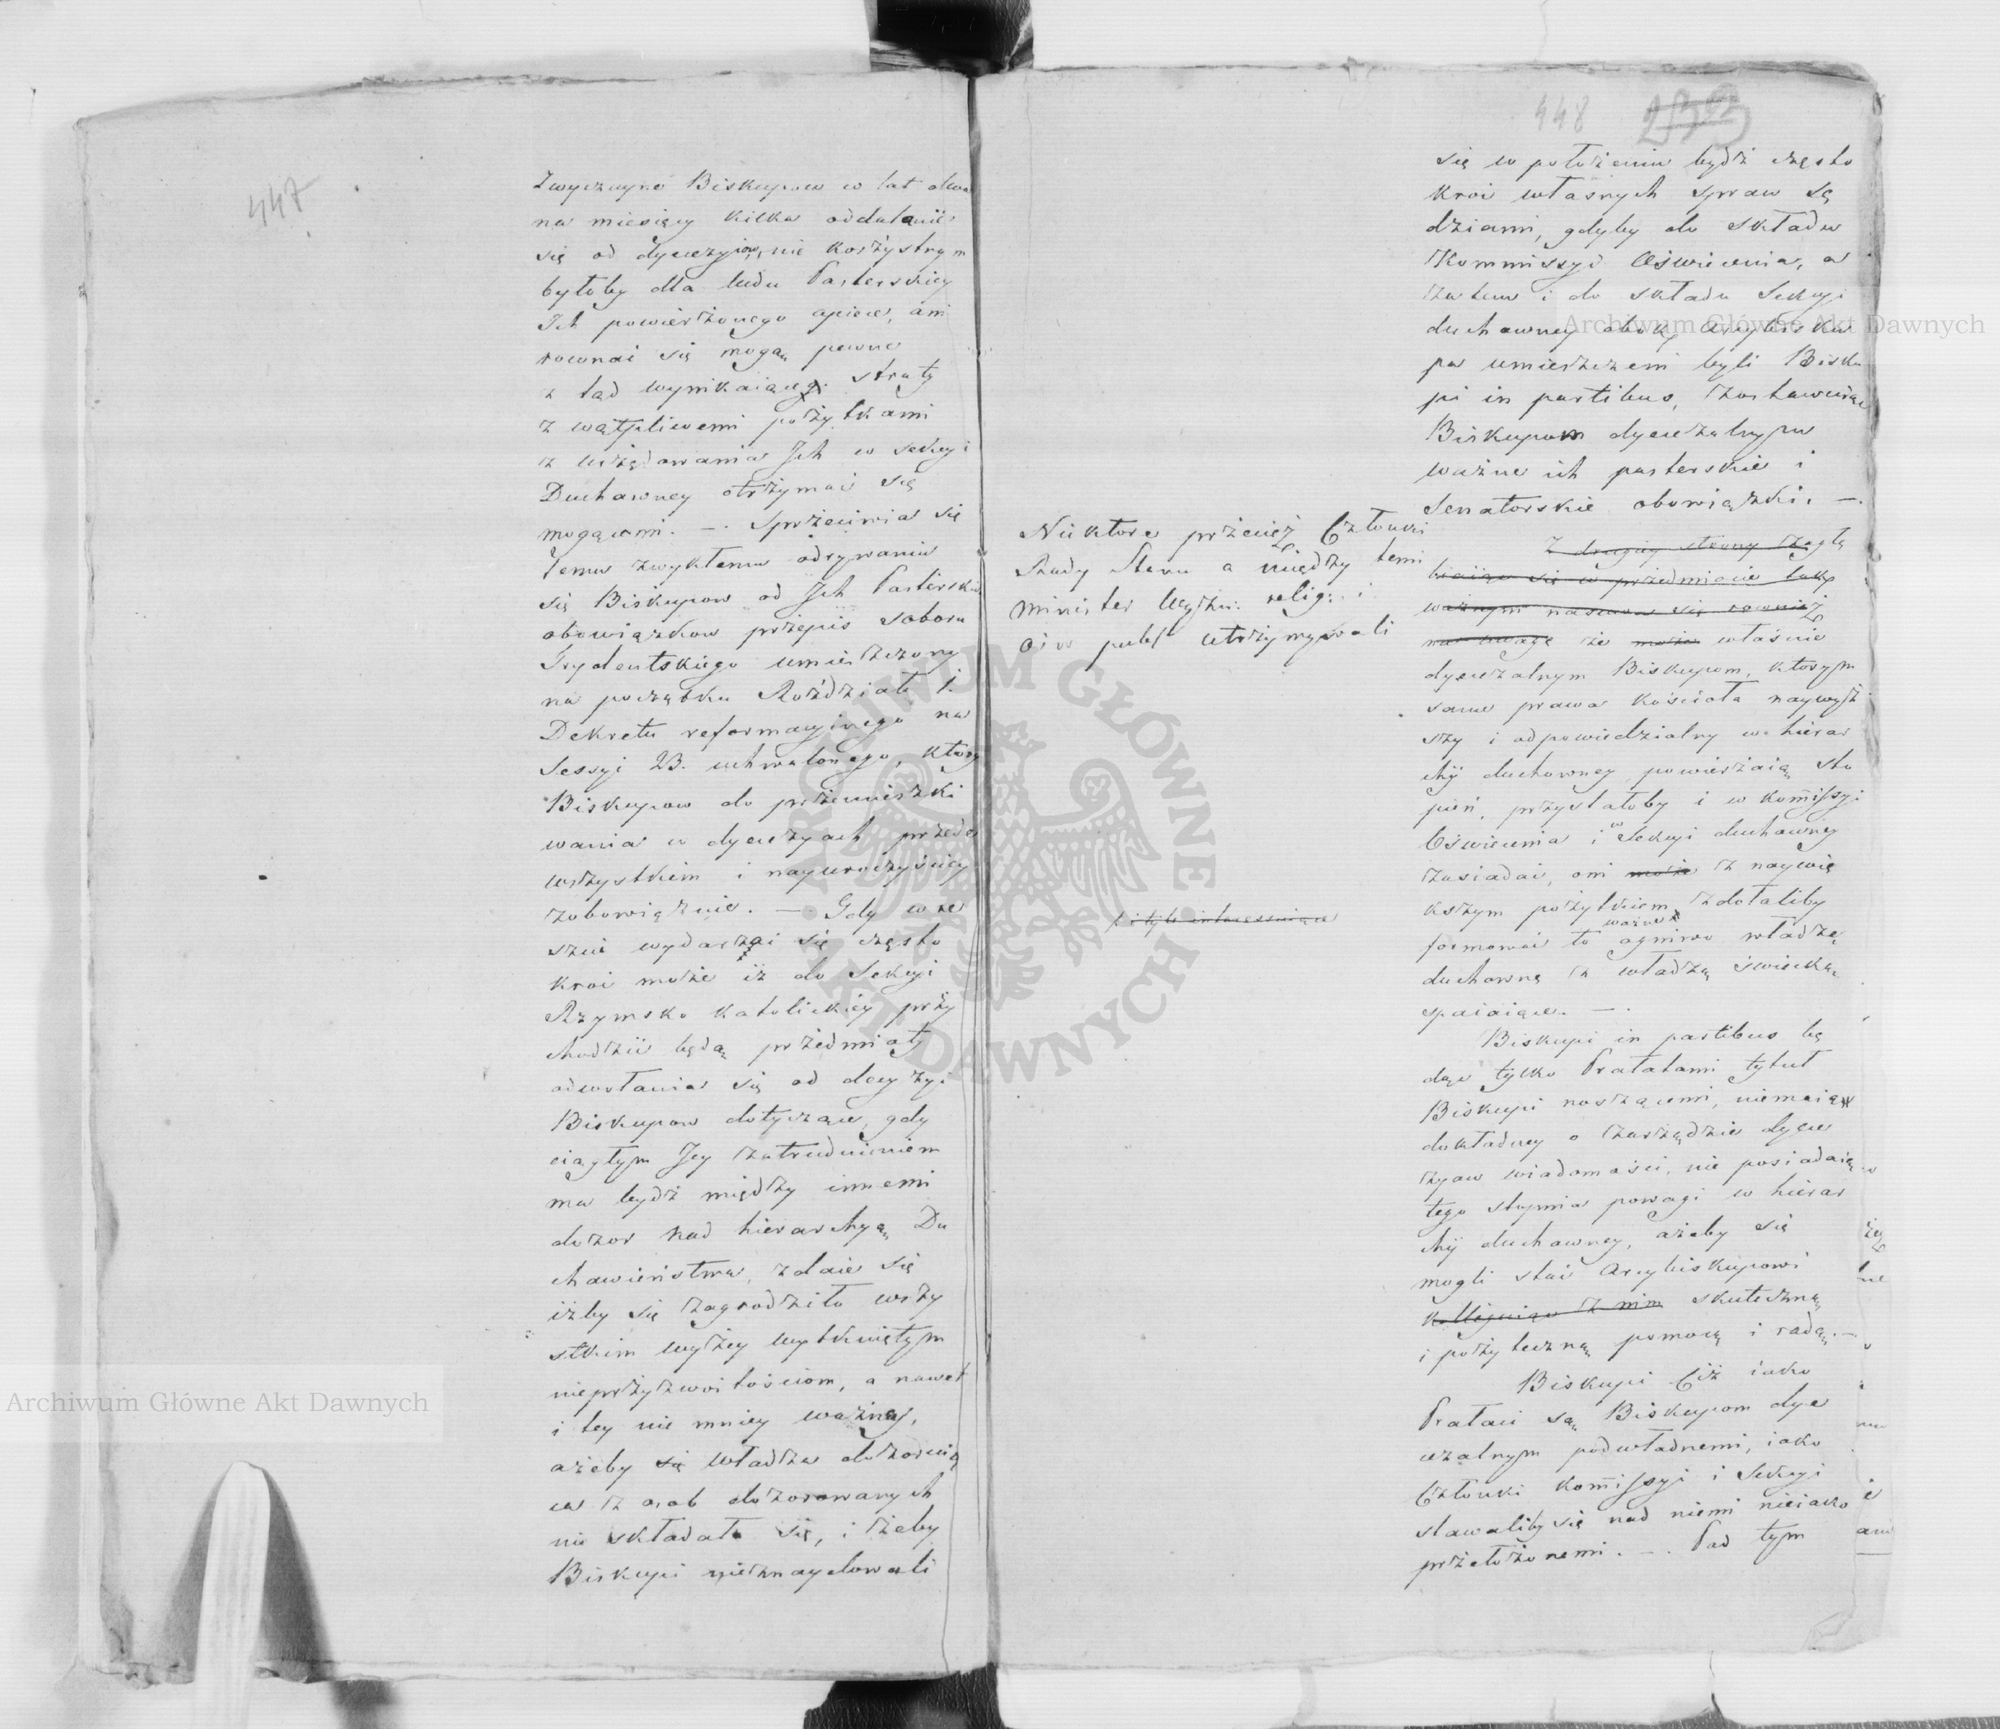 447
Zwyczayne Biskupow w lat dwa
na miesięcy kilka oddalanie
się od dyecezyiow, nie korzystnym
byłoby dla ludu Pasterskiey
Ich powierzonego opiece, ani
rownać się mogą pewne
z tąd wynikaiące straty
z wątpliwemi pożytkami
z urzędowania Ich w Sekcyi
Duchowney otrzymać się
mogącemi. — Sprzeciwia się
temu zwykłemu odrywaniu
się Biskupow od Ich Pasterskich
obowiązkow przepis Soboru
Trydentskiego umieszczony
na początku Rozdziału 1.
Dekretu reformacyinego na
Sessyi 23. uchwalonego, ktory
Biskupow do przemieszki
wania w dyecezyach przede
wszystkiem i nayuroczyściey
zobowiązuie. — Gdy wre
szcie wydarzać się często
kroć może iż do Sekcyi
Rzymsko Katolickiey przy
chodzić będą przedmioty
odwołania się od decyzyi
Biskupow dotyczące, gdy
ciągłym Jey zatrudnieniem
ma bydź między innemi
dozor nad hierarchyą Du
chowieństwa, zdaie się
iżby się zagrodziło wszy
stkim wyżey wytkniętym
nieprzyzwoitościom, a nawet
i tey nie mniey ważney,
ażeby się władza dozoruią
ca z osob dozorowanych
nie składała się, i żeby
Biskupi nieznaydowali
448
się w położeniu bydź często
kroć własnych spraw Sę
dziami, gdyby do składu
Kommissyi Oświecenia, a
zatem i do składu Sekcyi
duchowney obok Arcybisku
pa umieszczeni byli Bisku
pi in partibus, zostawuiąc
Biskupom dyecezalnym
ważne ich pasterskie i
Senatorskie obowiązki. —
Niektore przecież Członki
Rady Stanu a między temi
Minister Wyzn: relig: i
ośw pubł utrzymywali
Z drugiey strony zagłę
biaiąc się w przedmiocie tak
ważnym nasuwa się rownież
na uwagę że może właśnie
dyecezalnym Biskupom, ktorym
same prawa kościoła naywyż
szy i odpowiedzialny w hierar
chij duchowney powierzaią sto
pień, przystałoby i w Komissyi
Oświecenia i w Sekcyi duchowney
zasiadać, oni może z naywię
kszym pożytkiem zdołaliby
formować to ważne ogniwo władzę
duchowną z władzą świecką
spaiaiące. —
i tyle interessuiące
Biskupi in partibus bę
dąc tylko Prałatami tytuł
Biskupi noszącemi, niemaiąc
dokładney o zarządzie dyece
zyow wiadomości, nie posiadaiąc
tego stopnia powagi w hierar
chij duchowney, ażeby się
mogli stać Arcybiskupowi
kolliguiąc z nim skuteczną
i pożyteczną pomocą i radą. —
Biskupi Ciż iako
Prałaci są Biskupom dye
cezalnym podwładnemi, iako
Członki Komissyi i Sekcyi
stawaliby się nad niemi nieiako
przełożonemi. — Pod tym
Archiwum Główne Akt Dawnych
Archiwum Główne Akt Dawnych
ARCHIWUM GŁÓWNE AKT DAWNYCH